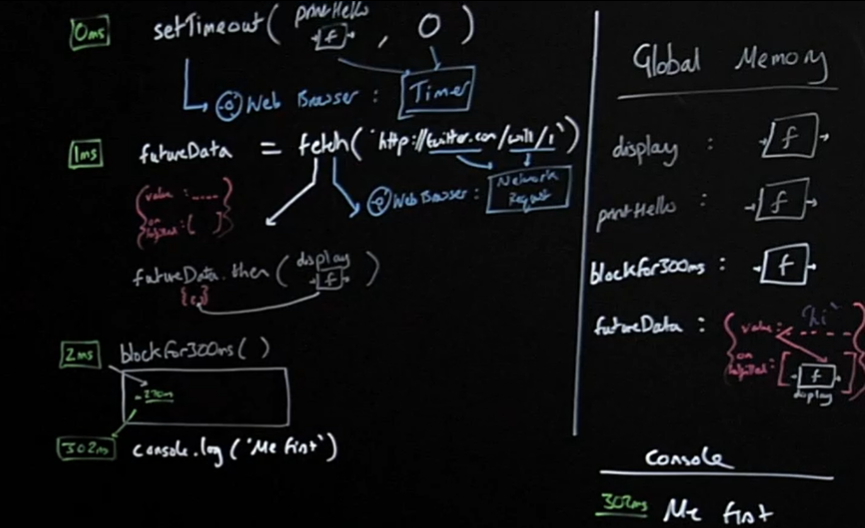 0ms setTimeout( printHello f , 0 )
@ Web Browser : Timer
1ms futureData = fetch('http://twitter.com/will/1')
{ value : .....
on fulfilled : [ ] }
@ Web Browser : Network Request
futureData.then( display f )
{ }
2ms blockFor300ms( )
302ms console.log('Me first')
Global Memory
display : f
printHello : f
blockFor300ms : f
futureData : { value : 'hi'
on fulfilled : [ f ] }
display
Console
302ms Me first